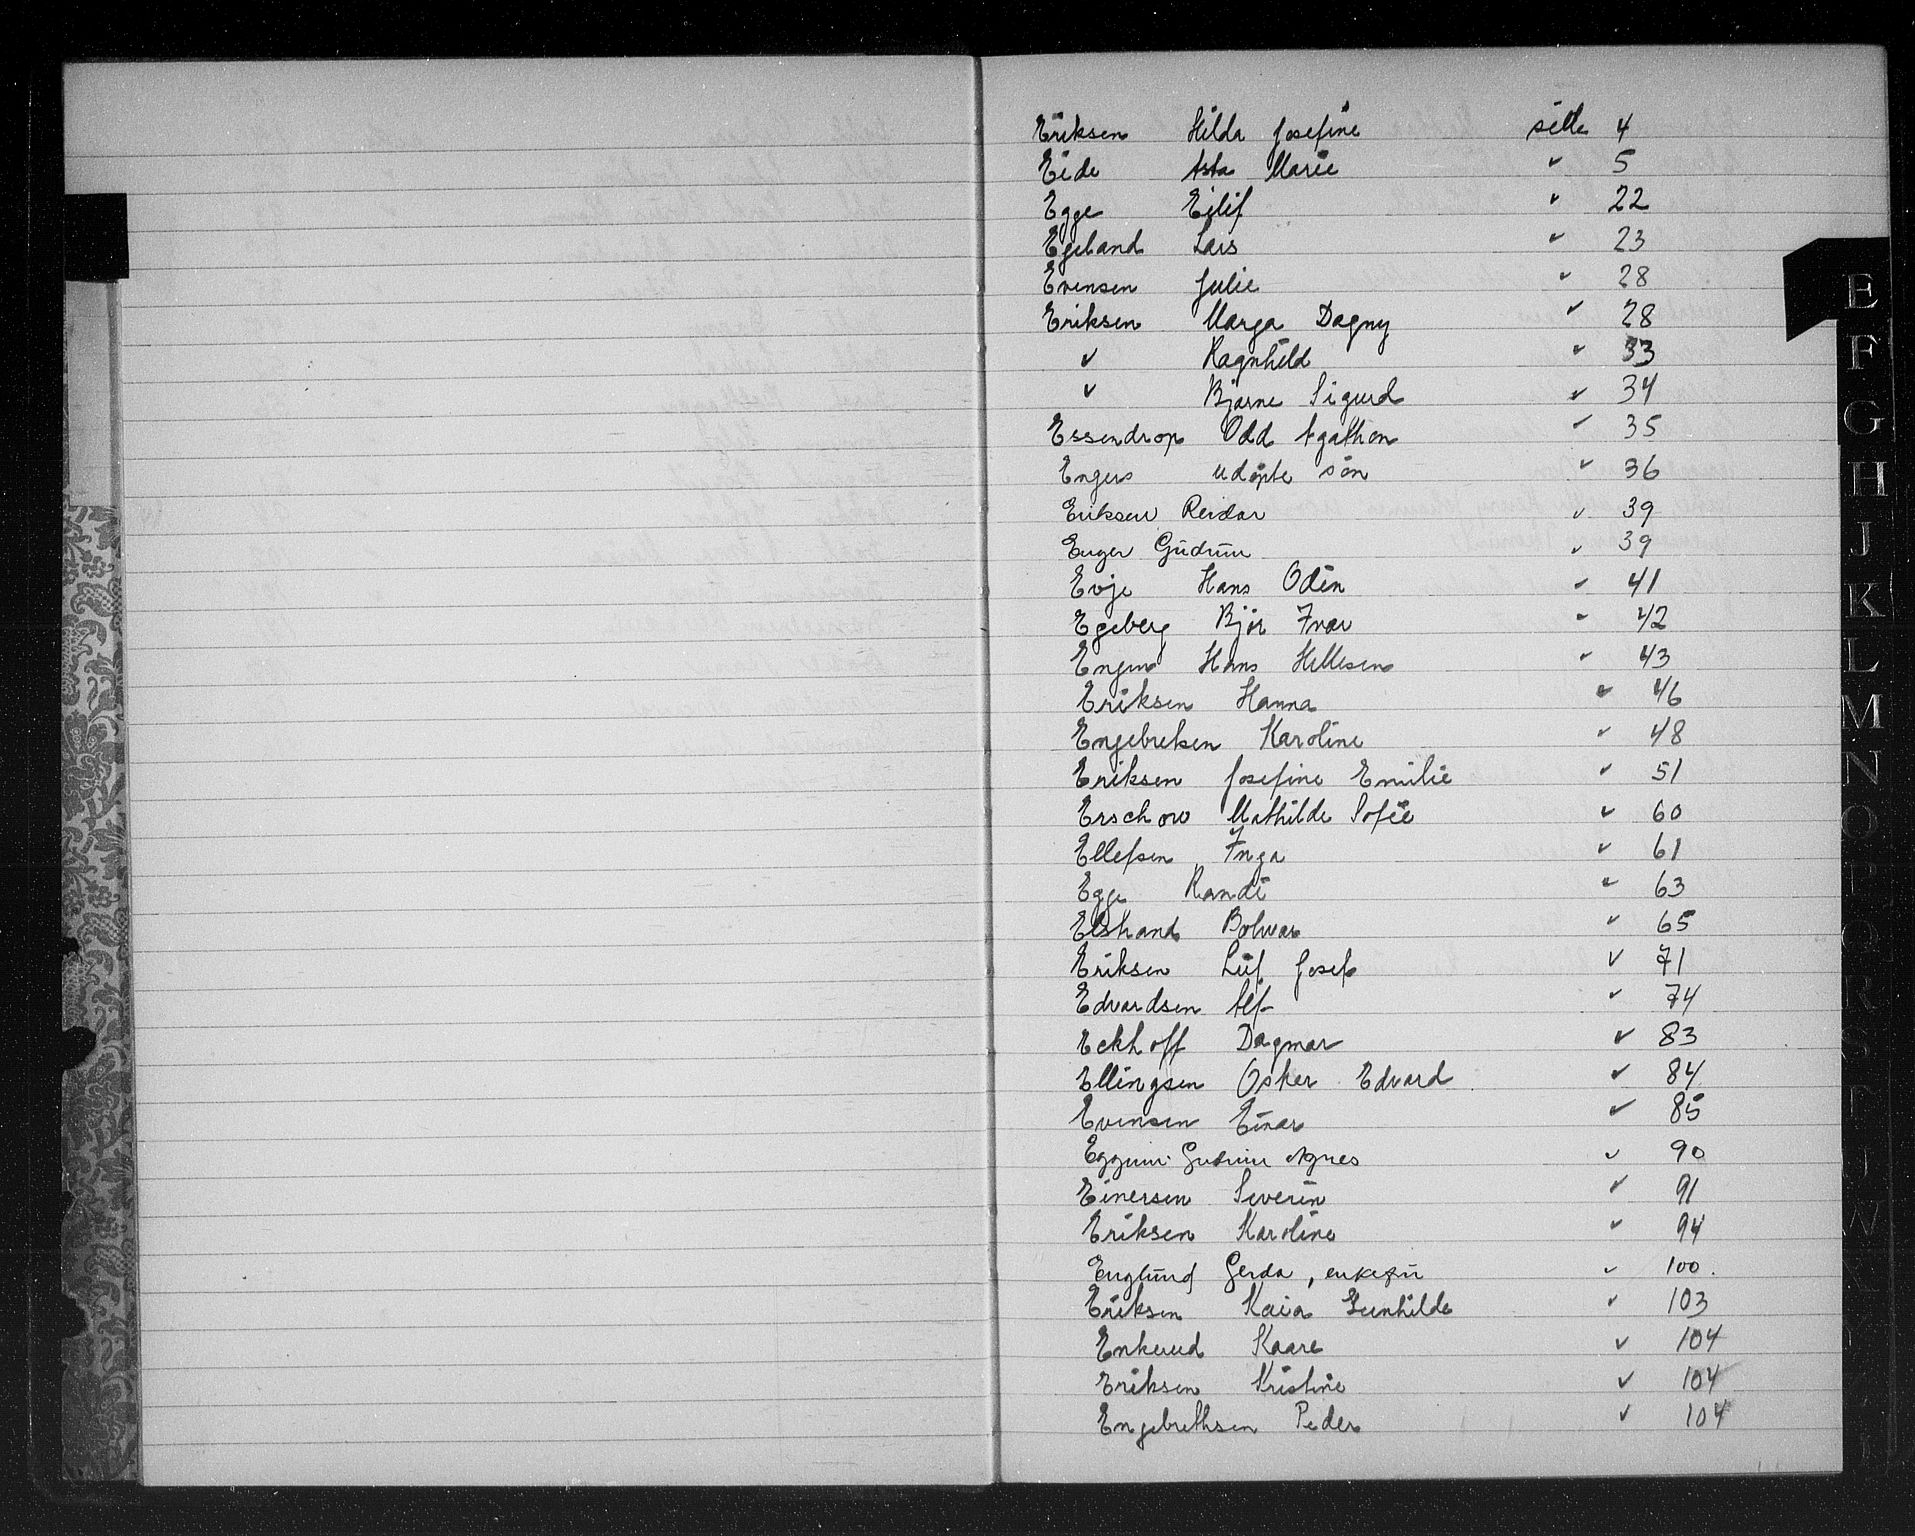 Eriksen Hilda Josefine side 4
Eide Asta Marie " 5
Egge Eilif " 22
Egeland Lars " 23
Evensen Julie " 28
Eriksen Marga Dagny " 28
" Ragnhild " 33
" Bjarne Sigurd " 34
Essendrop Odd Agathon " 35
Engers udøpte søn " 36
Eriksen Reidar " 39
Enger Gudrun " 39
Evje Hans Odin " 41
Egeberg Bjør Ivar " 42
Enger Hans Hellesen " 43
Eriksen Hanna " 46
Engebretsen Karoline " 48
Eriksen Josefine Emilie " 51
Erschow Mathilde Sofie " 60
Ellefsen Inga " 61
Egge Randi " 63
" 65
Eriksen Leif Josef " 71
Edvardsen Alf " 74
Eckhoff Dagmar " 83
Ellingsen Osker Edvard " 84
Evensen Einar " 85
Eggum Gudrun Agnes " 90
Einersen Severin " 91
Eriksen Karoline " 94
Englund Gerda, enkefru " 100.
Eriksen Kaia Gunhilde " 103
Kaare " 104
Eriksen Kristine " 104
Engebrethsen Peder " 104
E
F
G
H
J
K
L
M
N
O
P
Q
R
S